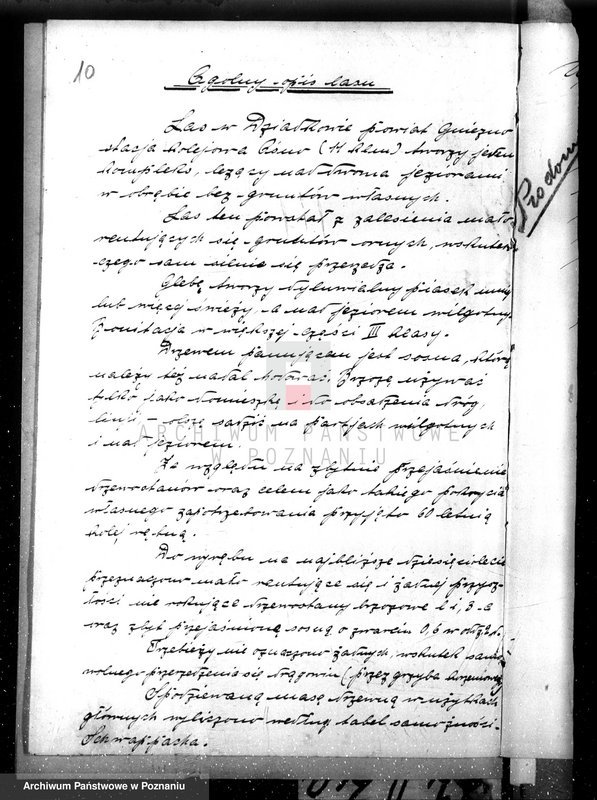 10
Ogólny opis lasu
Las w Dziadkowie powiat Gniezno
stacja kolejowa (11 klm) tworzy jeden
kompleks, leżący nad dwoma jeziorami
w obrębie bez gruntów własnych.
Las ten powstał z zalesienia mało
rentujących się gruntów ornych, wskutek
czego sam silnie się przerzedza.
Glebę tworzy dyluwialny piasek mniej
lub więcej świeży, a nad jeziorem wilgotny
Bonitacja w większej części III klasy.
Drzewem panującem jest sosna, którą
należy też nadal hodować. Brzozę używać
tylko jako domieszkę i do obsadzenia dróg,
linii – olszę sadzić na partjach wilgotnych
i nad jeziorem.
Ze względu na zbytnie przejaśnienie
drzewostanów oraz celem jako takiego pokrycia
własnego zapotrzebowania przyjęto 60 letnią
kolej rębną.
Do wyrębu na najbliższe dziesięciolecie
przeznaczono mało rentujące się i żadnej przysz-
łości nie rokujące drzewostany brzozowe 1 i, 3 a
oraz zbyt przejaśnioną sosnę o zwarciu 0,6 w
Trzebieży nie oznaczono żadnych, wskutek samo-
wolnego przerzedzenia się drągowin (przez grzyba korzeniowego
Spodziewaną masę drzewną w użytkach
głównych wyliczono według tabel zamożności
Schwappacha.
ARCHIWUM PAŃSTWOWE
W POZNANIU
Archiwum Państwowe w Poznaniu